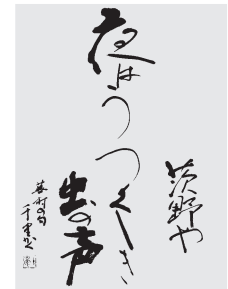 茨野や
夜はうつくしき
虫の声
蕪村の句